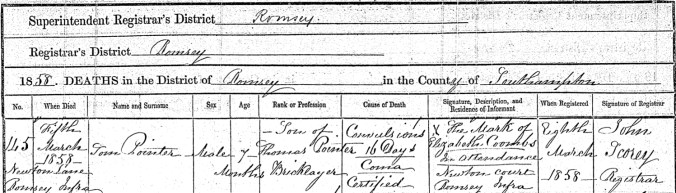 Superintendent Registrar's District Romsey.
Registrar's District Romsey
1858. DEATHS in the District of Romsey in the County of Southampton
No. When Died Name and Surname Sex Age Rank or Profession Cause of Death Signature, Description, and Residence of Informant When Registered Signature of Registrar
145
Fifth
March
1858
Newton Lane
Romsey Infra
Tom Pointer
Male
7
Months
Son of
Thomas Pointer
Bricklayer
Convulsions
16 Days
Coma
Certified
X The Mark of
Elizabeth Coombs
In attendance
Newton court
Romsey Infra
Eighth
March
1858
John
Registrar